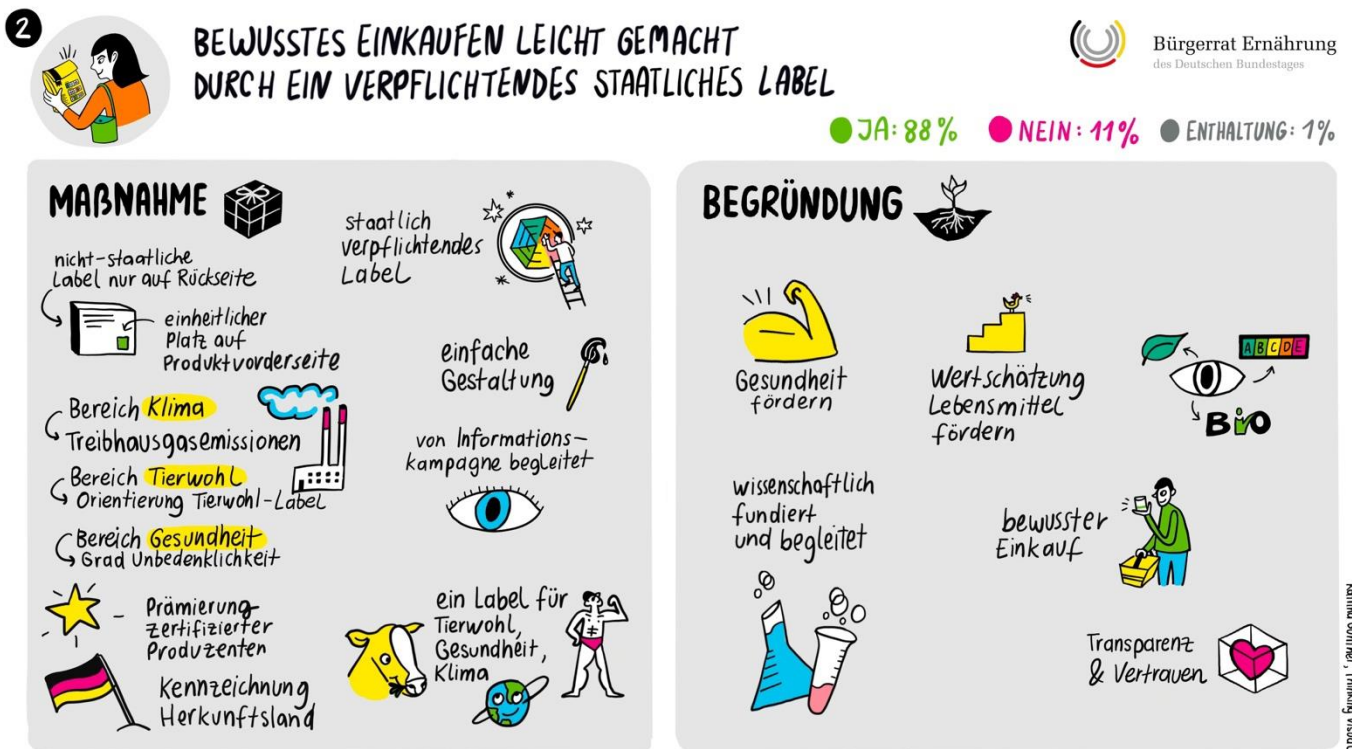 2
BEWUSSTES EINKAUFEN LEICHT GEMACHT
DURCH EIN VERPFLICHTENDES STAATLICHES LABEL
Bürgerrat Ernährung
des Deutschen Bundestages
JA: 88%
NEIN: 11%
ENTHALTUNG: 1%
MAßNAHME
nicht-staatliche
Label nur auf Rückseite
einheitlicher
Platz auf
Produktvorderseite
Bereich Klima
Treibhausgasemissionen
Bereich Tierwohl
Orientierung Tierwohl-Label
Bereich Gesundheit
Grad Unbedenklichkeit
Prämierung
zertifizierter
Produzenten
Kennzeichnung
Herkunftsland
staatlich
verpflichtendes
Label
einfache
Gestaltung
von Informations-
kampagne begleitet
ein Label für
Tierwohl,
Gesundheit,
Klima
BEGRÜNDUNG
Gesundheit
fördern
Wertschätzung
Lebensmittel
fördern
ABCDE
BiO
wissenschaftlich
fundiert
und begleitet
bewusster
Einkauf
Transparenz
& Vertrauen